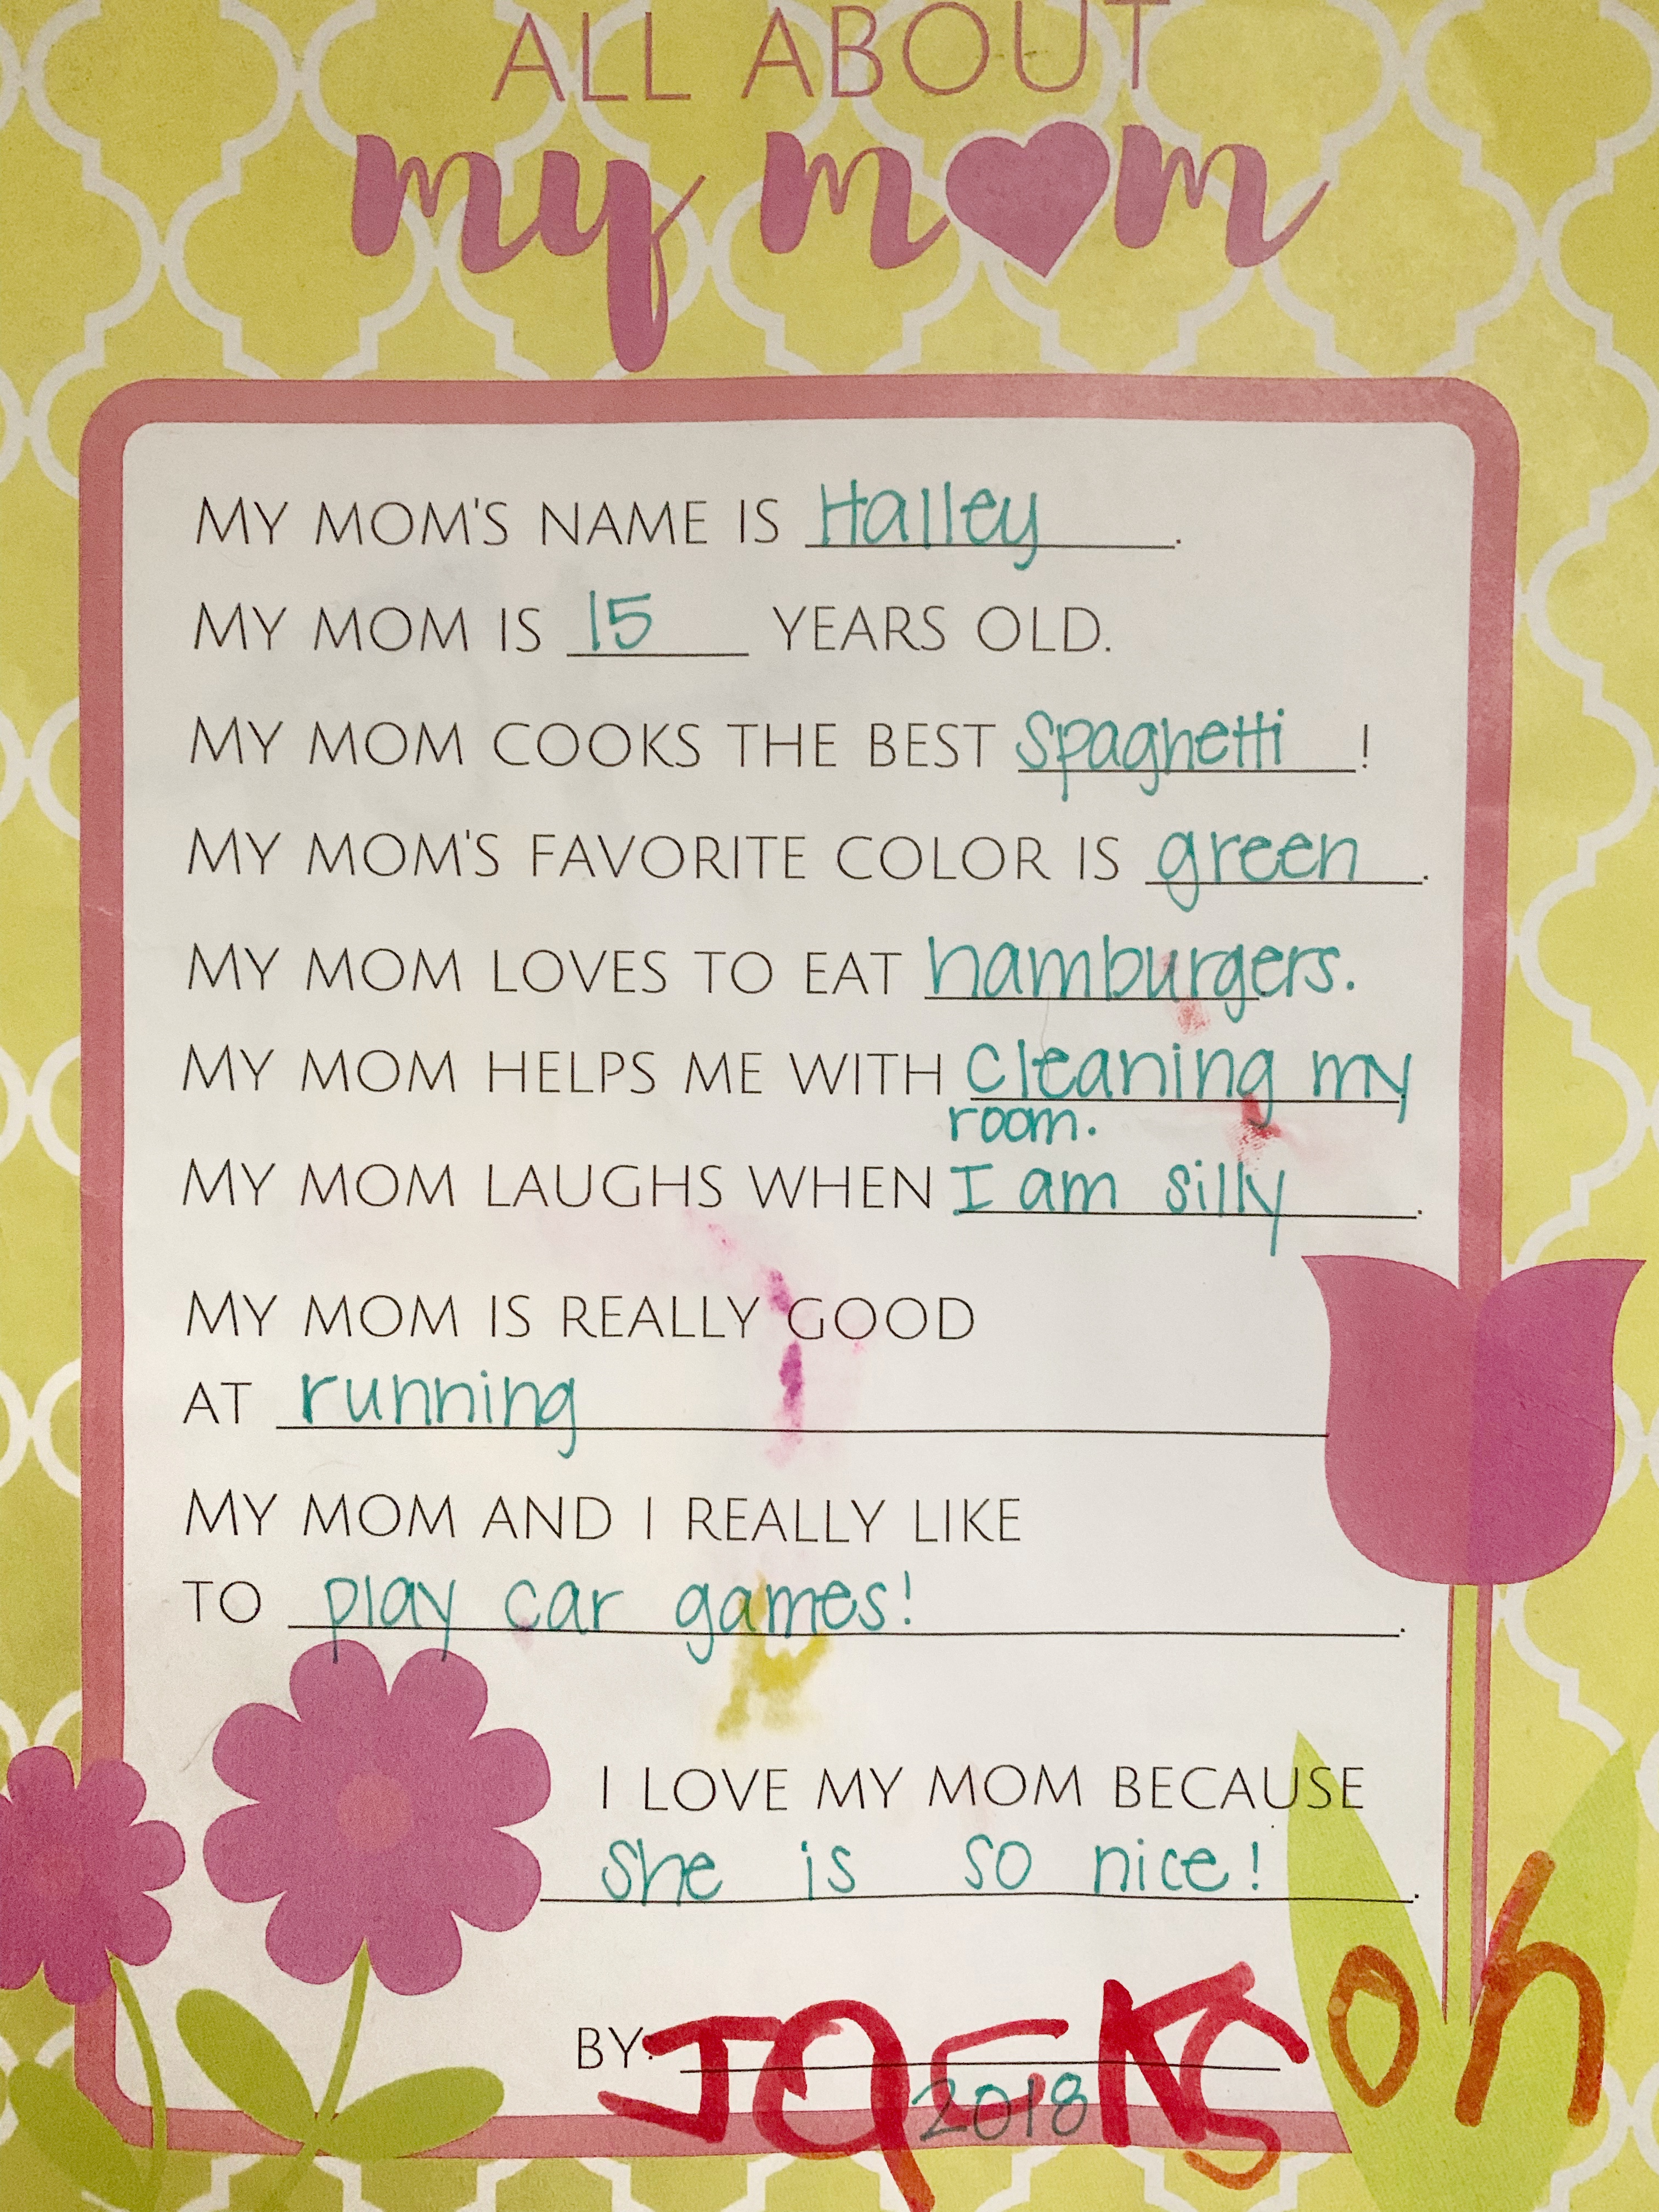 ALL ABOUT
my mom
MY MOM'S NAME IS Halley.
MY MOM IS 15 YEARS OLD.
MY MOM COOKS THE BEST Spaghetti!
MY MOM'S FAVORITE COLOR IS green.
MY MOM LOVES TO EAT hamburgers.
MY MOM HELPS ME WITH cleaning my
room.
MY MOM LAUGHS WHEN I am silly.
MY MOM IS REALLY GOOD
AT running
MY MOM AND I REALLY LIKE
TO play car games!.
I LOVE MY MOM BECAUSE
She is so nice!.
BY: JacKSon
2018